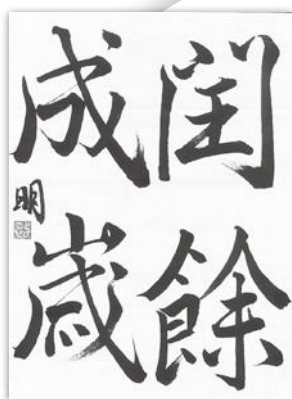 閏餘
成歲
明